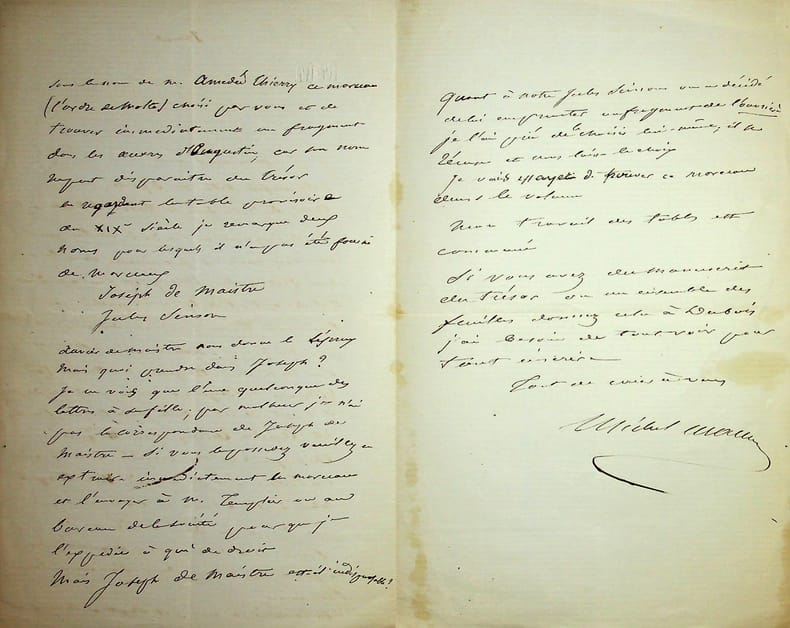 sous le nom de m. Amedée Thierry ce morceau
(l'ordre de Malte) choisi par vous et de
trouver immediatement un fragment
dans les œuvres d'Augustin, car son nom
ne peut disparaitre du trésor
en regardant la table provisoire
du XIXe siècle je remarque deux
noms pour lesquels il n'a pas été fourni
de morceaux
Joseph de Maistre
Jules Simon
Xavier de Maistre nous donne le Lépreux
Mais quoi prendre dans Joseph?
Je ne vois que l'une quelconque des
lettres à sa fille; par malheur je n'ai
pas la correspondance de Joseph de
Maistre – Si vous la possedez veuillez en
extraire immediatement le morceau
et l'envoyer à M. Templier ou au
bureau de la société pour que je
l'expedie à qui de droit
Mais Joseph de Maistre est-il indispensable?
Quant à notre Jules Simon on a décidé
de lui emprunter un fragment de l'ouvrière
je l'ai prié de le choisir lui-même, il se
récuse et nous laisse le choix
Je vais essayer de trouver ce morceau
dans le volume
Mon travail des tables est
commencé
Si vous avez du manuscrit
du trésor ou un ensemble des
feuilles donnez cela à Dubois
j'ai besoin de tout voir pour
tout
Tout de cœur à vous
Michel Masson